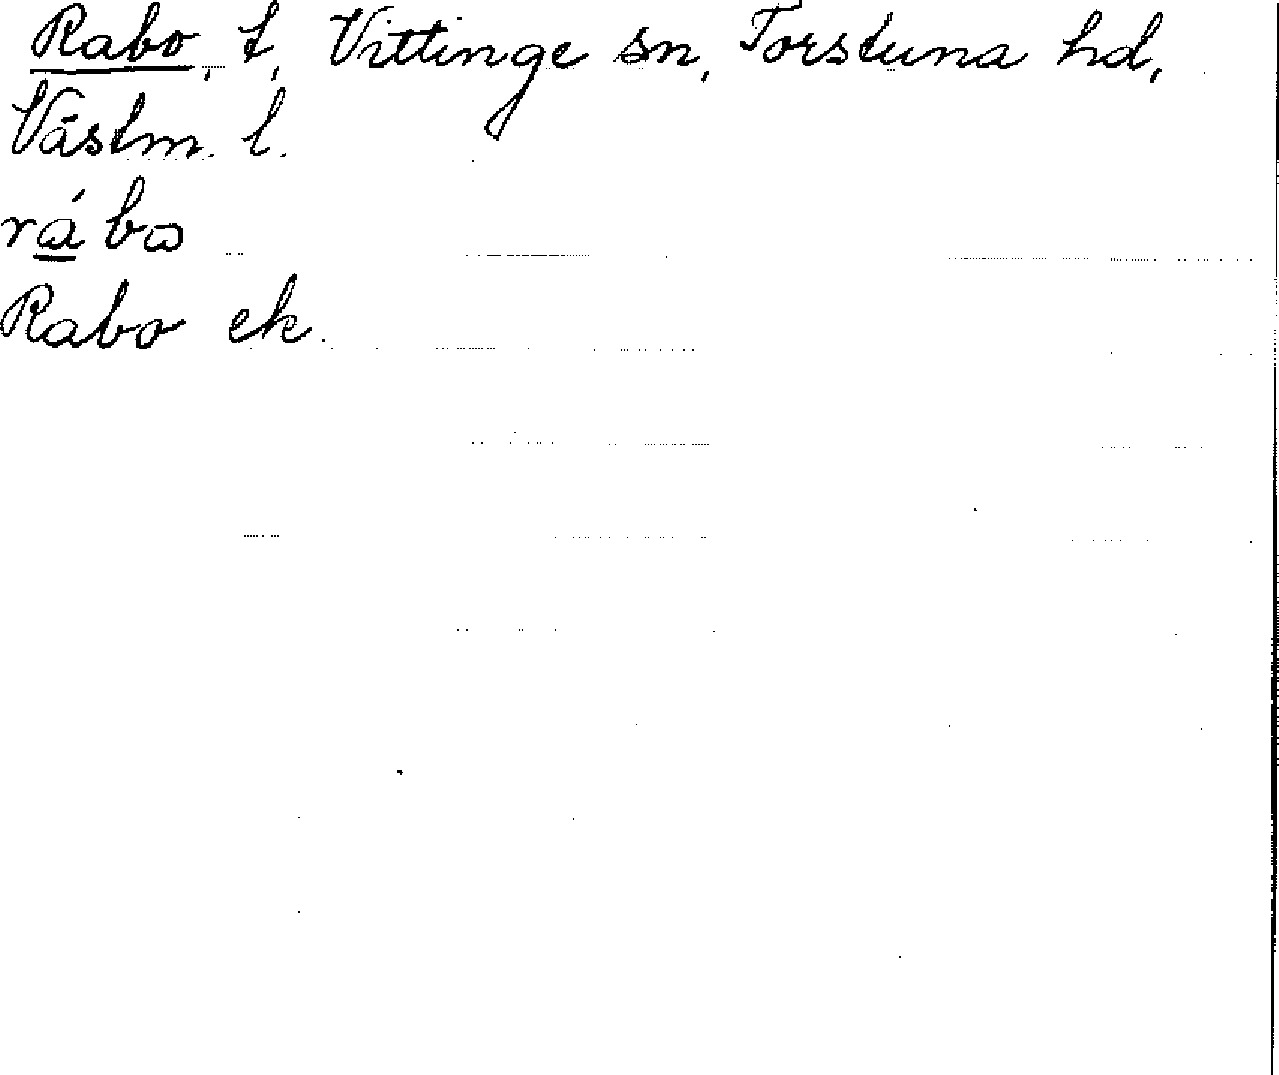 Rabo, t, Vittinge sn, Torstuna hd,
Västm. l.
rábɷ
Rabo ek.